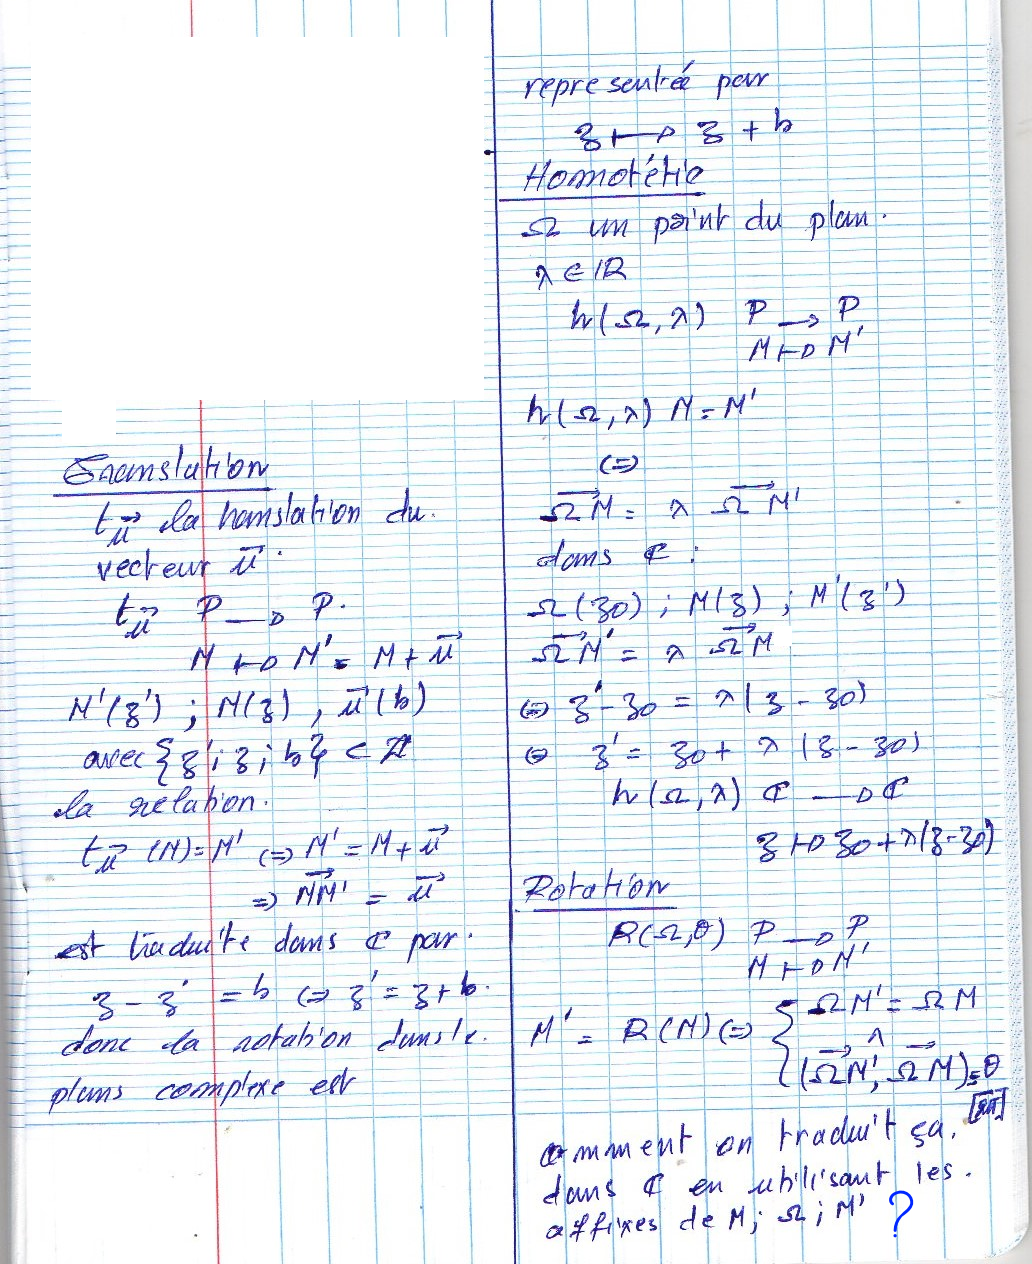 Translation
t_u⃗ la translation du.
vecteur u⃗.
t_u⃗ P → P.
M ↦ M' = M + u⃗
M'(z') ; M(z) , u⃗(b)
avec {z'; z; b} ⊂ ℂ
la relation.
t_u⃗ (M) = M' ⇔ M' = M + u⃗
⇒ MM'⃗ = u⃗
est traduite dans ℂ par.
z - z' = b ⇔ z' = z + b.
donc la rotation dans le.
plans complexe est
representée par
z ↦ z + b
Homotétie
Ω un point du plan.
λ ∈ ℝ
h(Ω, λ) P → P
M ↦ M'
h(Ω, λ) M = M'
⇔
ΩM⃗ = λ ΩM'⃗
dans ℂ :
Ω(z0) ; M(z) ; M'(z')
ΩM'⃗ = λ ΩM⃗
⇔ z' - z0 = λ(z - z0)
⇔ z' = z0 + λ(z - z0)
h(Ω, λ) ℂ → ℂ
z ↦ z0 + λ(z - z0)
Rotation
R(Ω, θ) P → P
M ↦ M'
M' = R(M) ⇔ { ΩM' = ΩM
(ΩM'⃗, ΩM⃗) = θ
[2π]
comment on traduit ça.
dans ℂ en utilisant les.
affixes de M ; Ω ; M' ?